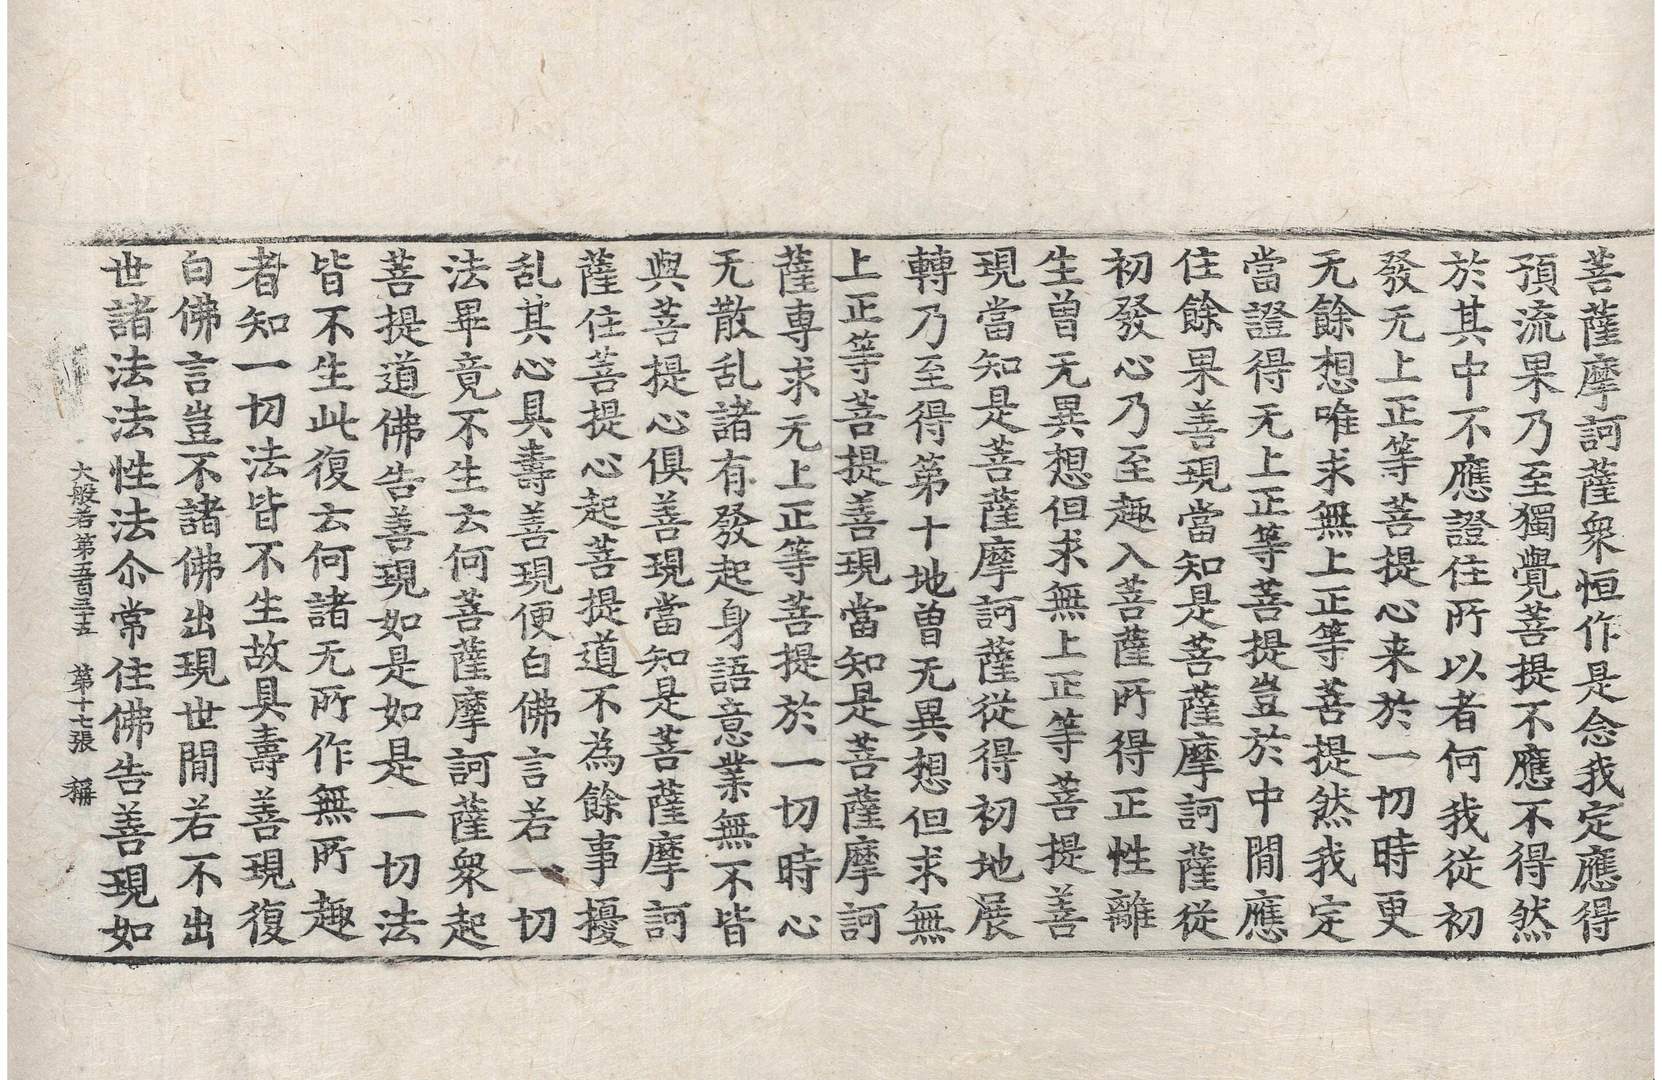 菩薩摩訶薩衆恒作是念我定應得
預流果乃至獨覺菩提不應不得然
於其中不應證住所以者何我從初
發无上正等菩提心来於一切時更
无餘想唯求無上正等菩提然我定
當證得无上正等菩提豈於中間應
住餘果善現當知是菩薩摩訶薩從
初發心乃至趣入菩薩所得正性離
生曾无異想但求無上正等菩提善
現當知是菩薩摩訶薩從得初地展
轉乃至得第十地曾无異想但求無
上正等菩提善現當知是菩薩摩訶
薩專求无上正等菩提於一切時心
无散乱諸有發起身語意業無不皆
與菩提心俱善現當知是菩薩摩訶
薩住菩提心起菩提道不為餘事擾
乱其心具壽善現便白佛言若一切
法畢竟不生云何菩薩摩訶薩衆起
菩提道佛告善現如是如是一切法
皆不生此復云何諸无所作無所趣
者知一切法皆不生故具壽善現復
白佛言豈不諸佛出現世間若不出
世諸法法性法尒常住佛告善現如
大般若第五百三十五 第十七張 稱